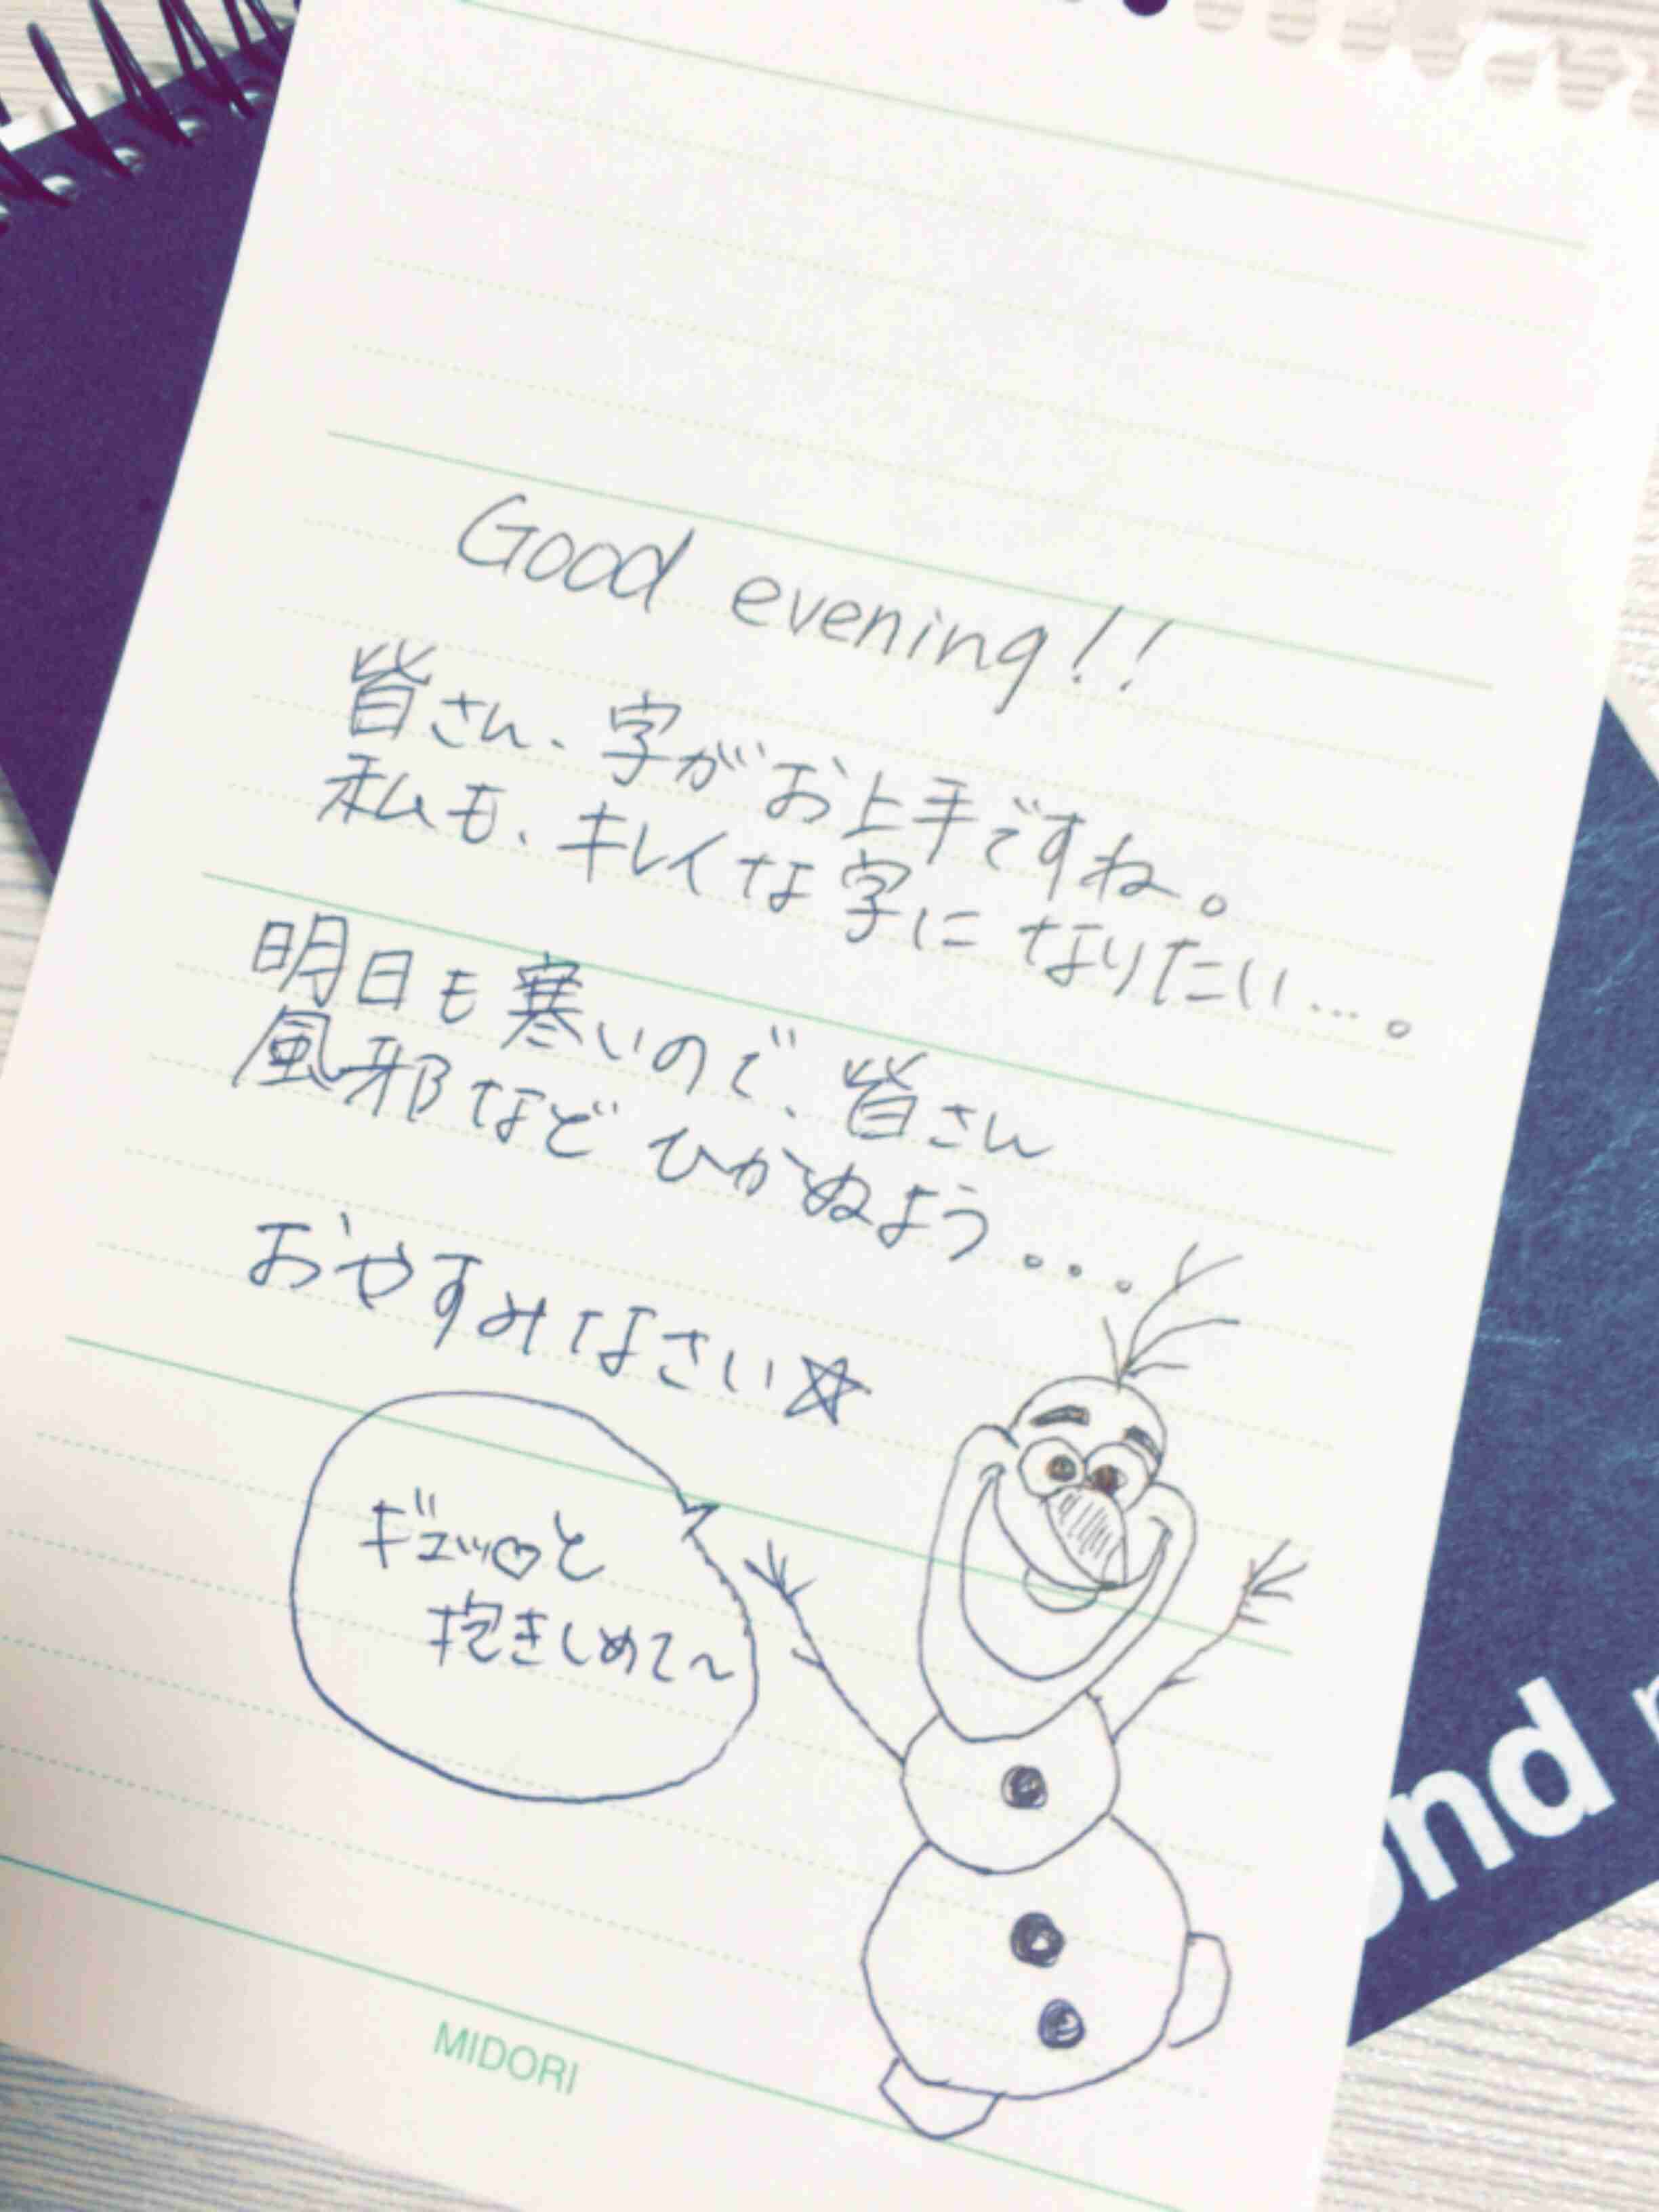 Good evening!!
皆さん、字がお上手ですね。
私も、キレイな字になりたい…。
明日も寒いので、皆さん
風邪などひかぬよう...
おやすみなさい☆
ギュッ♡と
抱きしめて〜
nd
MIDORI